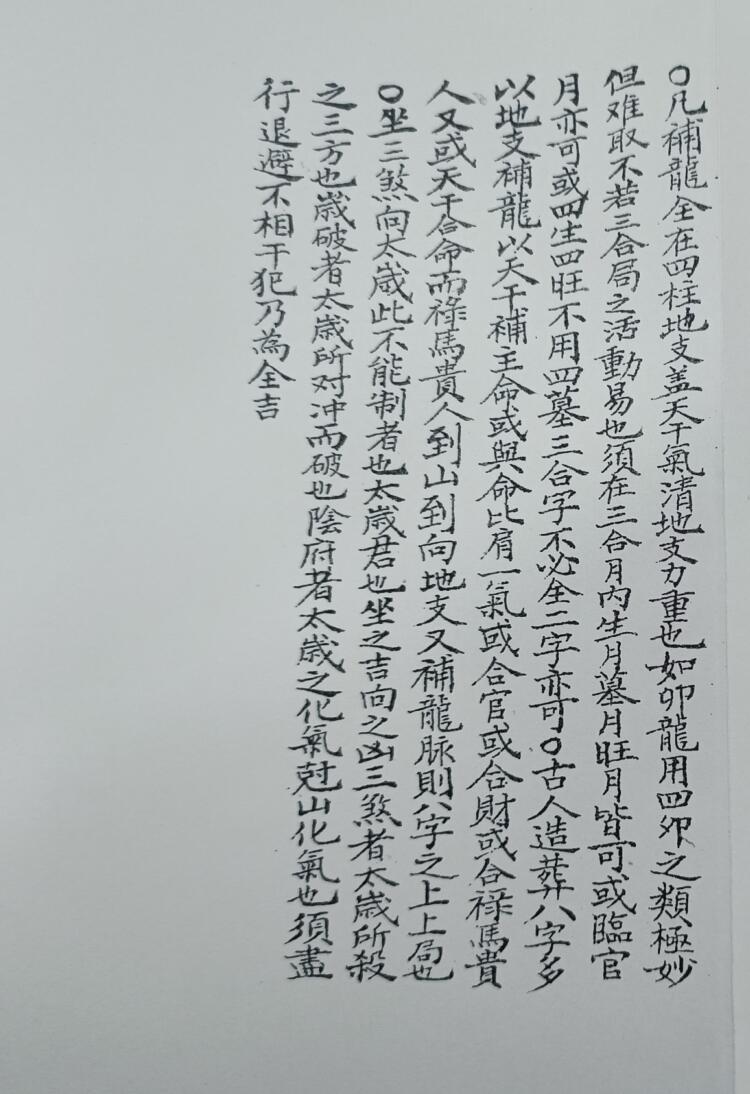 ○凡補龍全在四柱地支盖天干氣清地支力重也如卯龍用四卯之類極妙
但难取不若三合局之活動易也須在三合月内生月墓月旺月皆可或臨官
月亦可或四生四旺不用四墓三合字不必全二字亦可○古人造葬八字多
以地支補龍以天干補主命或與命比肩一氣或合官或合財或合禄馬貴
人又或天干合命而祿馬貴人到山到向地支又補龍脉則八字之上上局也
○坐三煞向太歲此不能制者也太歲君也坐之吉向之凶三煞者太歲所殺
之三方也歲破者太歲所对冲而破也陰府者太歲之化氣尅山化氣也須盡
行退避不相干犯乃為全吉